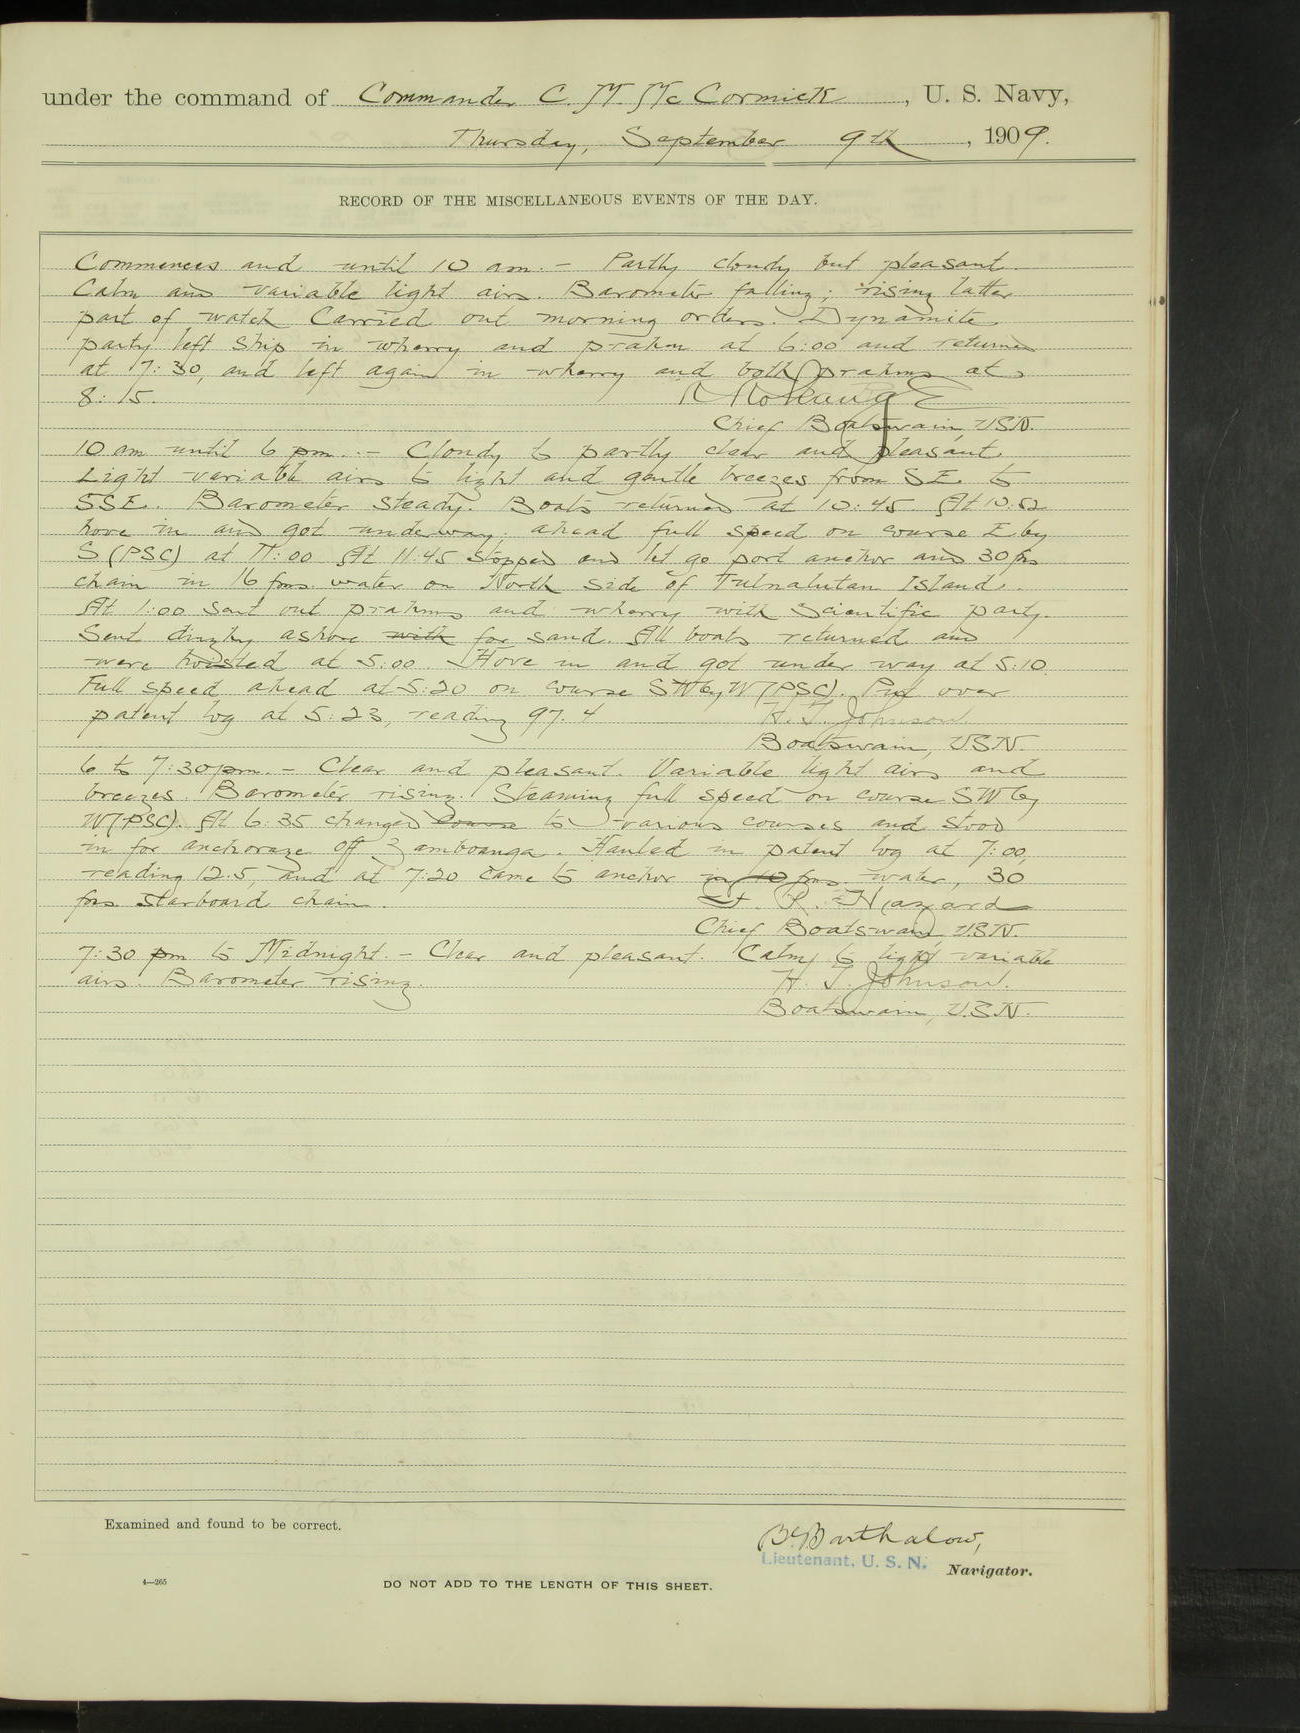 under the command of Commander C. M. McCormick, U. S. Navy,
Thursday, September 9th, 1909.
RECORD OF THE MISCELLANEOUS EVENTS OF THE DAY.
Commences and until 10 am. - Partly cloudy but pleasant.
Calm and variable light airs. Barometer falling; rising latter
part of watch Carried out morning orders. Dynamite
party left ship in wherry and prahm at 6:00 and returned
at 7:30, and left again in wherry and both prahms at
8:15.
Chief Boatswain, USN.
10 am until 6 pm. - Cloudy to partly clear and pleasant.
Light variable airs to light and gentle breezes from SE. to
SSE. Barometer steady. Boats returned at 10:45. At 10:52
hove in and got underway; ahead full speed on course E by
S (PSC) at 11:00 At 11:45 stopped and let go port anchor and 30 fms
chain in 16 fms. water on North side of Tulnalutan Island.
At 1:00 sent out prahms and wherry with Scientific party.
Sent dinghy ashore with for sand. All boats returned and
were hoisted at 5:00. Hove in and got under way at 5:10.
Full speed ahead at 5:20 on course SW by W (PSC). Put over
patent log at 5:23, reading 97.4
H. T. Johnson
Boatswain, USN.
6 to 7:30 pm. - Clear and pleasant. Variable light airs and
breezes. Barometer rising. Steaming full speed on course SW by
W (PSC). At 6:35 changed course to various courses and stood
in for anchorage off Zamboanga. Hauled in patent log at 7:00,
reading 12.5, and at 7:20 came to anchor in 10 fms. water, 30
fms. starboard chain.
F. R. Hazard
Chief Boatswain U.S.N.
7:30 pm to Midnight. - Clear and pleasant. Calm to light variable
airs. Barometer rising.
H. T. Johnson.
Boatswain, U.S.N.
Examined and found to be correct.
B. Barthalow,
Lieutenant, U. S. N. Navigator.
4—265
DO NOT ADD TO THE LENGTH OF THIS SHEET.